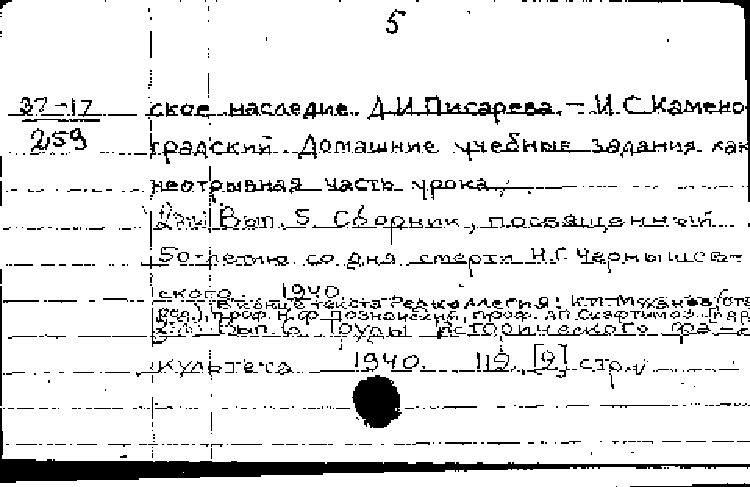 5
37-17
259
ское наследие Д.И.Писарева. – И.С.Камено
градский. Домашние учебные задания как
неотрывная часть урока.
Вып. 5. Сборник, посвященный
50-летию со дня смерти Н.Г. Чернышев-
ского. 1940.
текста Редколлегия:
проф. проф. А.П. Скафтымов
Вып. 6. Труды исторического фа-
культета 1940. 112, [2] стр.